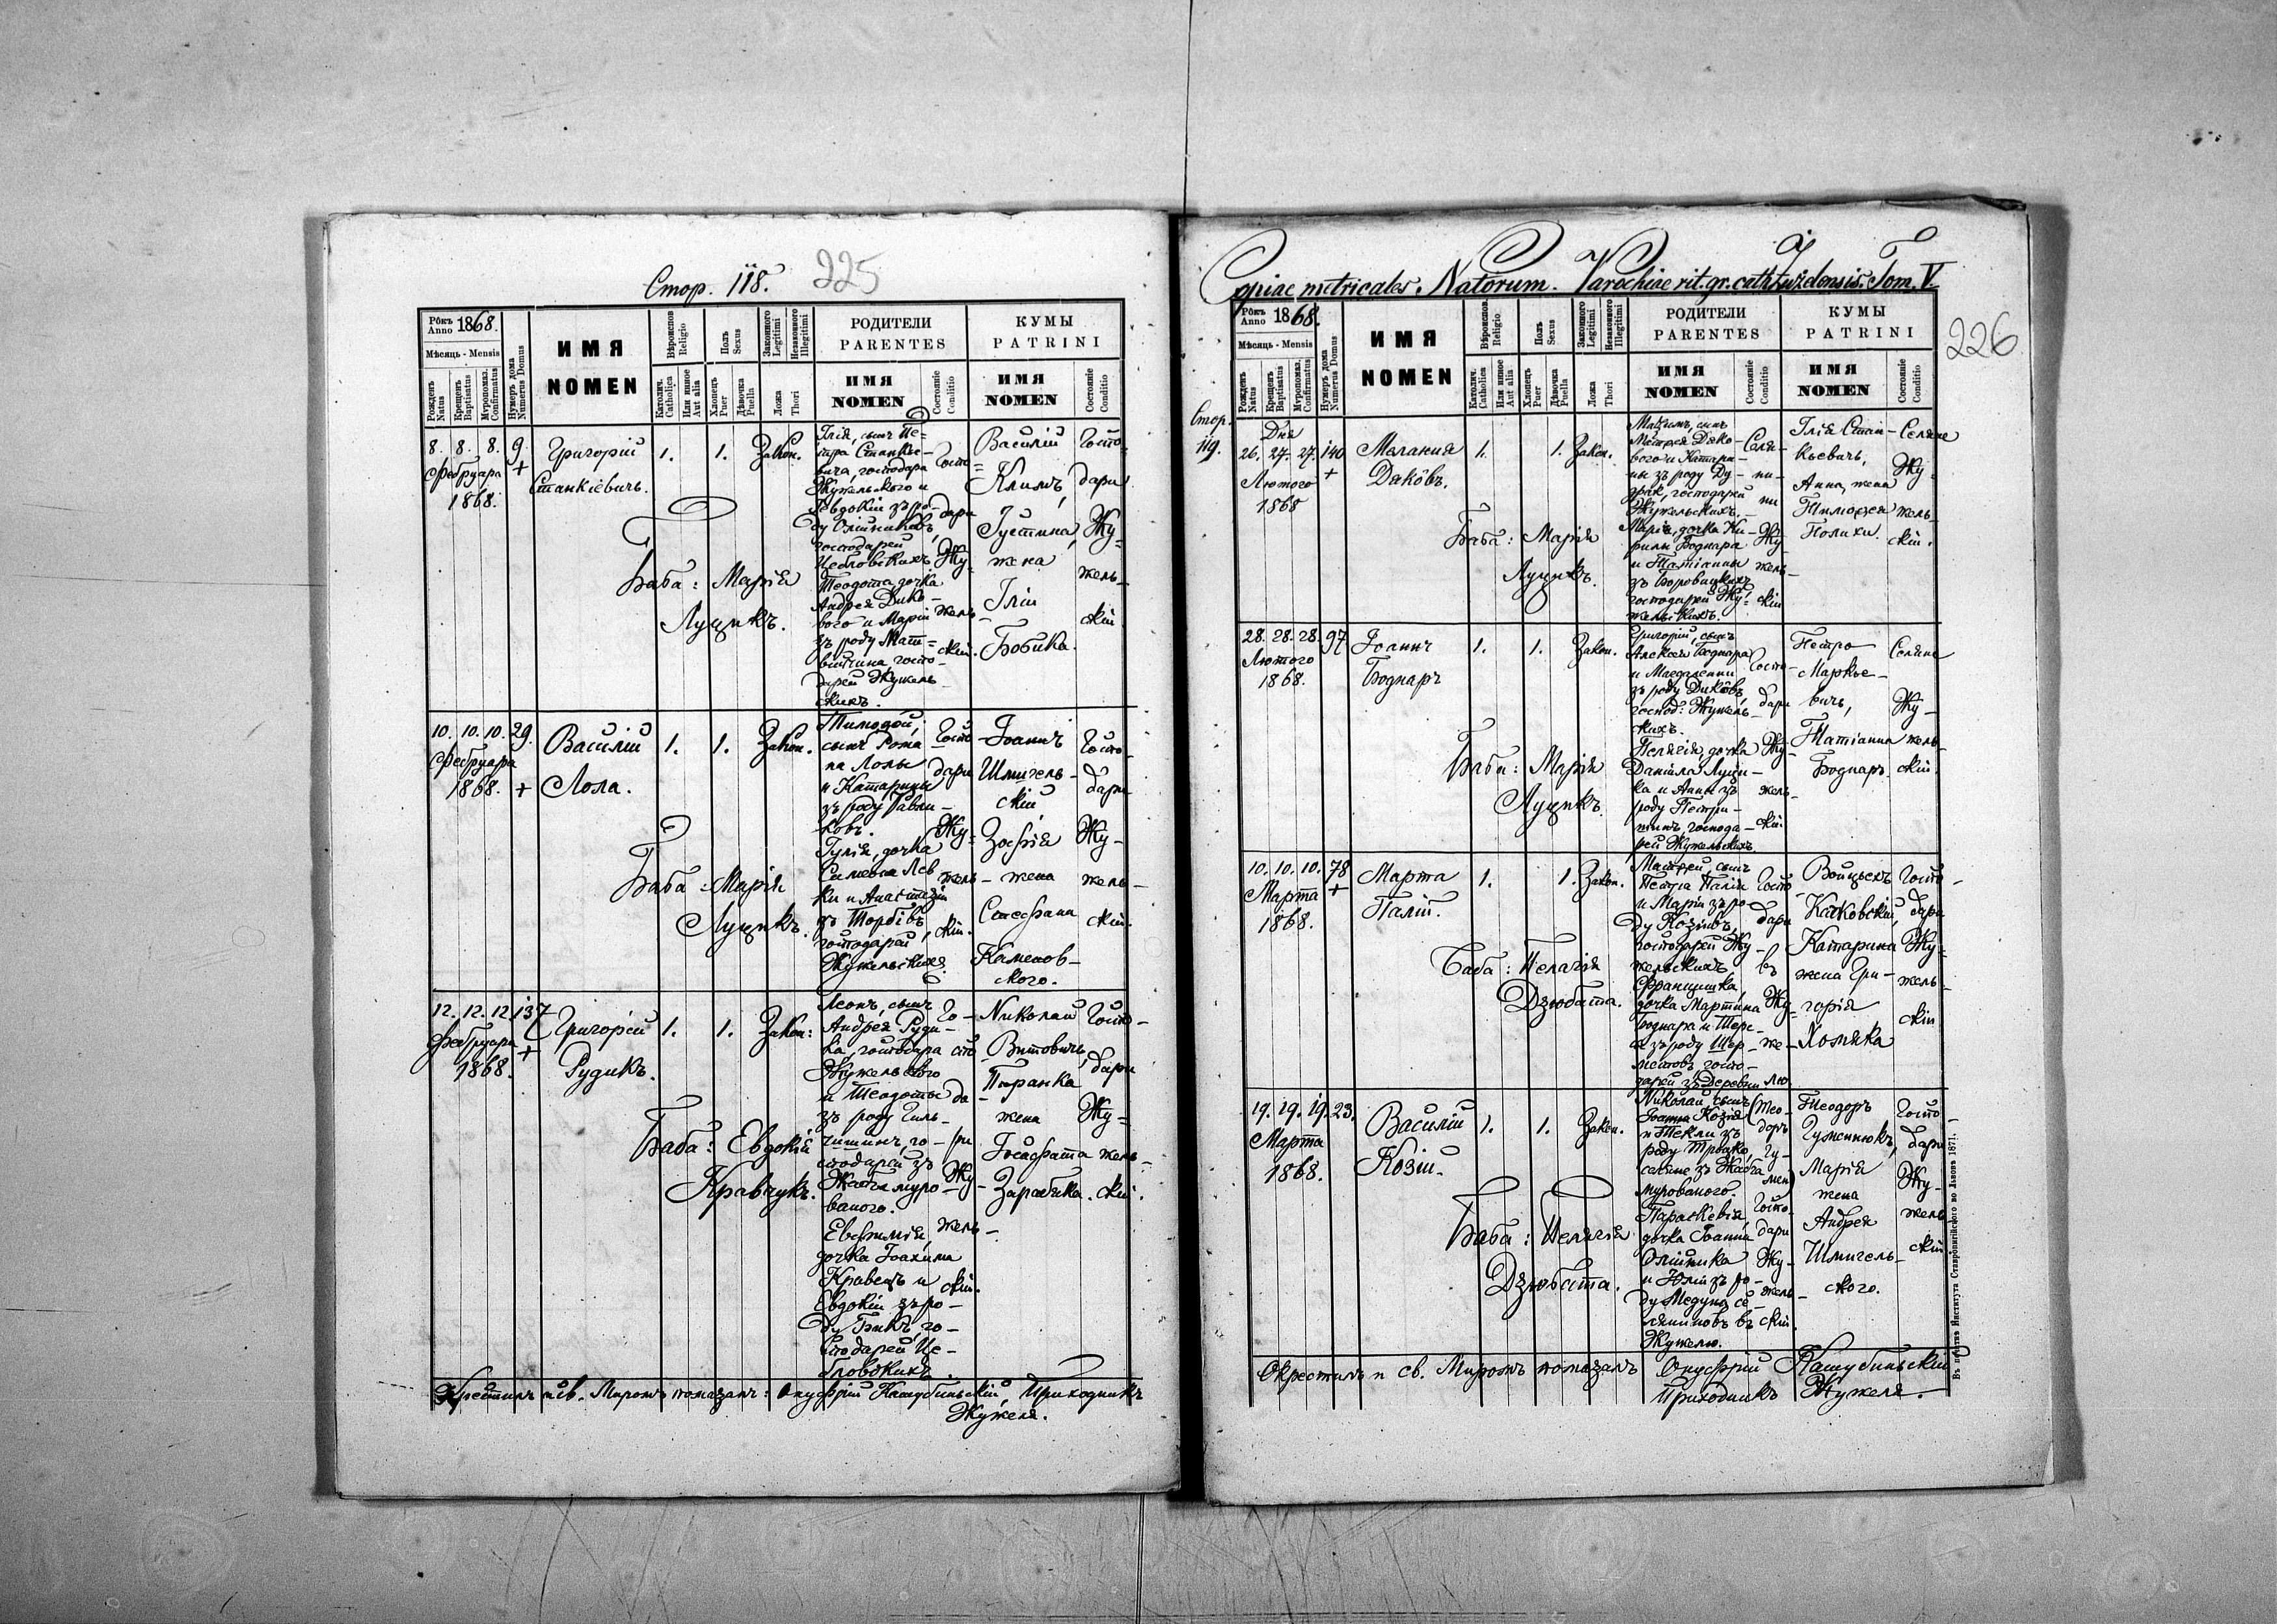 Стор. 118. 225
Рôкъ Anno 1868.
Мѣсяць - Mensis
Рожденъ Natus
Крещенъ Baptisatus
Мѵропомаз. Confirmatus
Нумеръ дома Numerus Domus
ИМЯ
NOMEN
Вѣроиспов Religio
Католич. Catholica
Или инное Aut alia
Полъ Sexus
Хлопецъ Puer
Дѣвочка Puella
Законного Legitimi
Незаконного Illegitimi
Ложа Thori
РОДИТЕЛИ
PARENTES
ИМЯ
NOMEN
Состояніе Conditio
КУМЫ
PATRINI
ИМЯ
NOMEN
Состояніе Conditio
8. 8. 8. 9.
Фебруара +
1868.
Григорій
Станкіевичъ.
1. 1. Закон.
Баба: Марія
Лущикъ.
Ілія, сынъ Пе=
тра Станкіе-
вича, господара
Жужельского и
Евдокіи зъ ро-
ду Олійниковъ,
господарей
Цебловскихъ
Теодота дочка
Андрея Дико-
вого и Маріи
зъ роду Мат=
господарей Жужель-
скихъ.
Госпо=
дари
Жу=
жель-
скіи.
Василій
Климъ,
Густина,
жена
Іліи
Бобика.
Госпо-
дари
Жу=
жель-
скіи.
10. 10. 10. 29.
Фебруара
1868. +
Василій
Лола.
1. 1. Закон.
Баба: Марія
Лущикъ.
Тимофей,
сынъ Рома
на Лолы
и Катарины
зъ роду Гаври-
ковъ.
Гулія, дочка
Симеона Лев
ки и Анастазіи
зъ Торбівъ
господарей
Жужельскихъ.
Госпо
дари
Жу=
жель-
скіи.
Іоаннъ
Шмигель-
скій
Зофія
жена
Стефана
Каменов-
ского.
Госпо-
дари
Жу-
жель-
скіи.
12. 12. 12. 137
Фебруара +
1868.
Григорій
Рудикъ.
1. 1. Закон:
Баба: Евдокія
Кравчукъ.
Леонъ, сынъ
Андрея Руди-
ка, господара
Жужельского
и Теодоты
зъ роду Гиль-
чишинъ, го-
сподарей зъ
Жабча муро-
ваного.
Евфимія,
дочка Іоахима
Кравецъ и
Евдокіи зъ ро-
ду Бикъ, го-
сподарей Це-
бловскихъ.
Го-
спо
да-
ри
Жу
жель-
скіи.
Николай
Витовичъ,
Паранка
жена
Іосафата
Зарабяка.
Госпо-
дари
Жу=
жель-
скіи.
Крестилъ и св. Миромъ помазалъ: Онуфрій Кашубиньскій, Приходникъ
Жужеля.
Copiae metricales. Natorum. Parochiae rit. gr. cath. Żużelensis. Tom. V.
226
Рôкъ Anno 1868.
Мѣсяць - Mensis
Рожденъ Natus
Крещенъ Baptisatus
Мѵропомаз. Confirmatus
Нумеръ дома Numerus Domus
ИМЯ
NOMEN
Вѣроиспов. Religio
Католич. Catholica
Или инное Aut alia
Полъ Sexus
Хлопецъ Puer
Дѣвочка Puella
Законного Legitimi
Незаконного Illegitimi
Ложа Thori
РОДИТЕЛИ
PARENTES
ИМЯ
NOMEN
Состояніе Conditio
КУМЫ
PATRINI
ИМЯ
NOMEN
Состояніе Conditio
Стор.
119.
Дня
26. 27. 27. 140
Лютого +
1868
Мелания
Дякôвъ.
1. 1. Закон.
Баба: Марія
Лущикъ.
Максимъ, сынъ
Матфея Дяко-
вого и Катари-
ны зъ роду Ду-
дракъ, господарей
Жужельскихъ.
Марія, дочка Ки-
рилы Боднара
и Татіанны
зъ Боровицкихъ
господарей Жу-
жельскихъ.
Селя-
ни-
ни
Жу-
жель-
скіи
Ілія Стан-
кьевичъ,
Анна, жена
Тимофея
Полихи.
Селяне
Жу-
жель-
скіи.
28. 28. 28. 97
Лютого
1868.
Іоаннъ
Боднаръ
1. 1. Закон.
Баба: Марія
Лущикъ.
Григорій, сынъ
Алексея Боднара
и Магдалены
зъ роду Дикôвъ,
господ: Жужель-
скихъ.
Пелагія, дочка
Даніила Лущи-
ка и Анны зъ
роду Петри-
шинъ, господа-
рей Жужельскихъ
Госпо-
дари
Жу-
жель-
скіи
Петро
Маркье-
вичъ,
Татіанна
Боднаръ.
Селяне
Жу-
жель-
скіи.
10. 10. 10. 78
Марта +
1868.
Марта
Палій.
1. 1. Закон.
Баба: Пелагія
Дзюбата.
Матфей, сынъ
Петра Палія
и Маріи зъ ро-
ду Козіивъ,
господарей Жу-
жельскихъ
Францишка,
дочка Мартина
Боднара и Тере-
зъ роду Шер-
метовъ, госпо-
дарей зъ Деревни
Госпо
дари
въ
Жу-
же-
лю.
Войцьехъ
Каковскій,
Катарина
жена Гри-
горія
Хомяка
Госпо-
дари
Жу=
жель-
скіи
19. 19. 19. 23.
Марта
1868.
Василій
Козій.
1. 1. Закон.
Баба: Пелагія
Дзюбата.
Николай, сынъ
Іоанна Козія
и Теклы зъ
роду
селяне зъ Жабча
мурованого.
Параскевія,
дочка Іоанна
Олійника
и Юліи зъ ро-
ду Медунъ, се-
ляниновъ въ
Жужелю.
Госпо-
дари
Жу-
жель-
скіи.
Теодоръ
Гуменюкъ,
Марія
жена
Андрея
Шмигель-
ского.
Госпо
дари
Жу-
жель-
скіи
Окрестилъ и св. Миромъ помазалъ Онуфрій Кашубиньскій
Приходникъ Жужеля.
Въ печатни Института Ставропигійского во Львовѣ 1871.